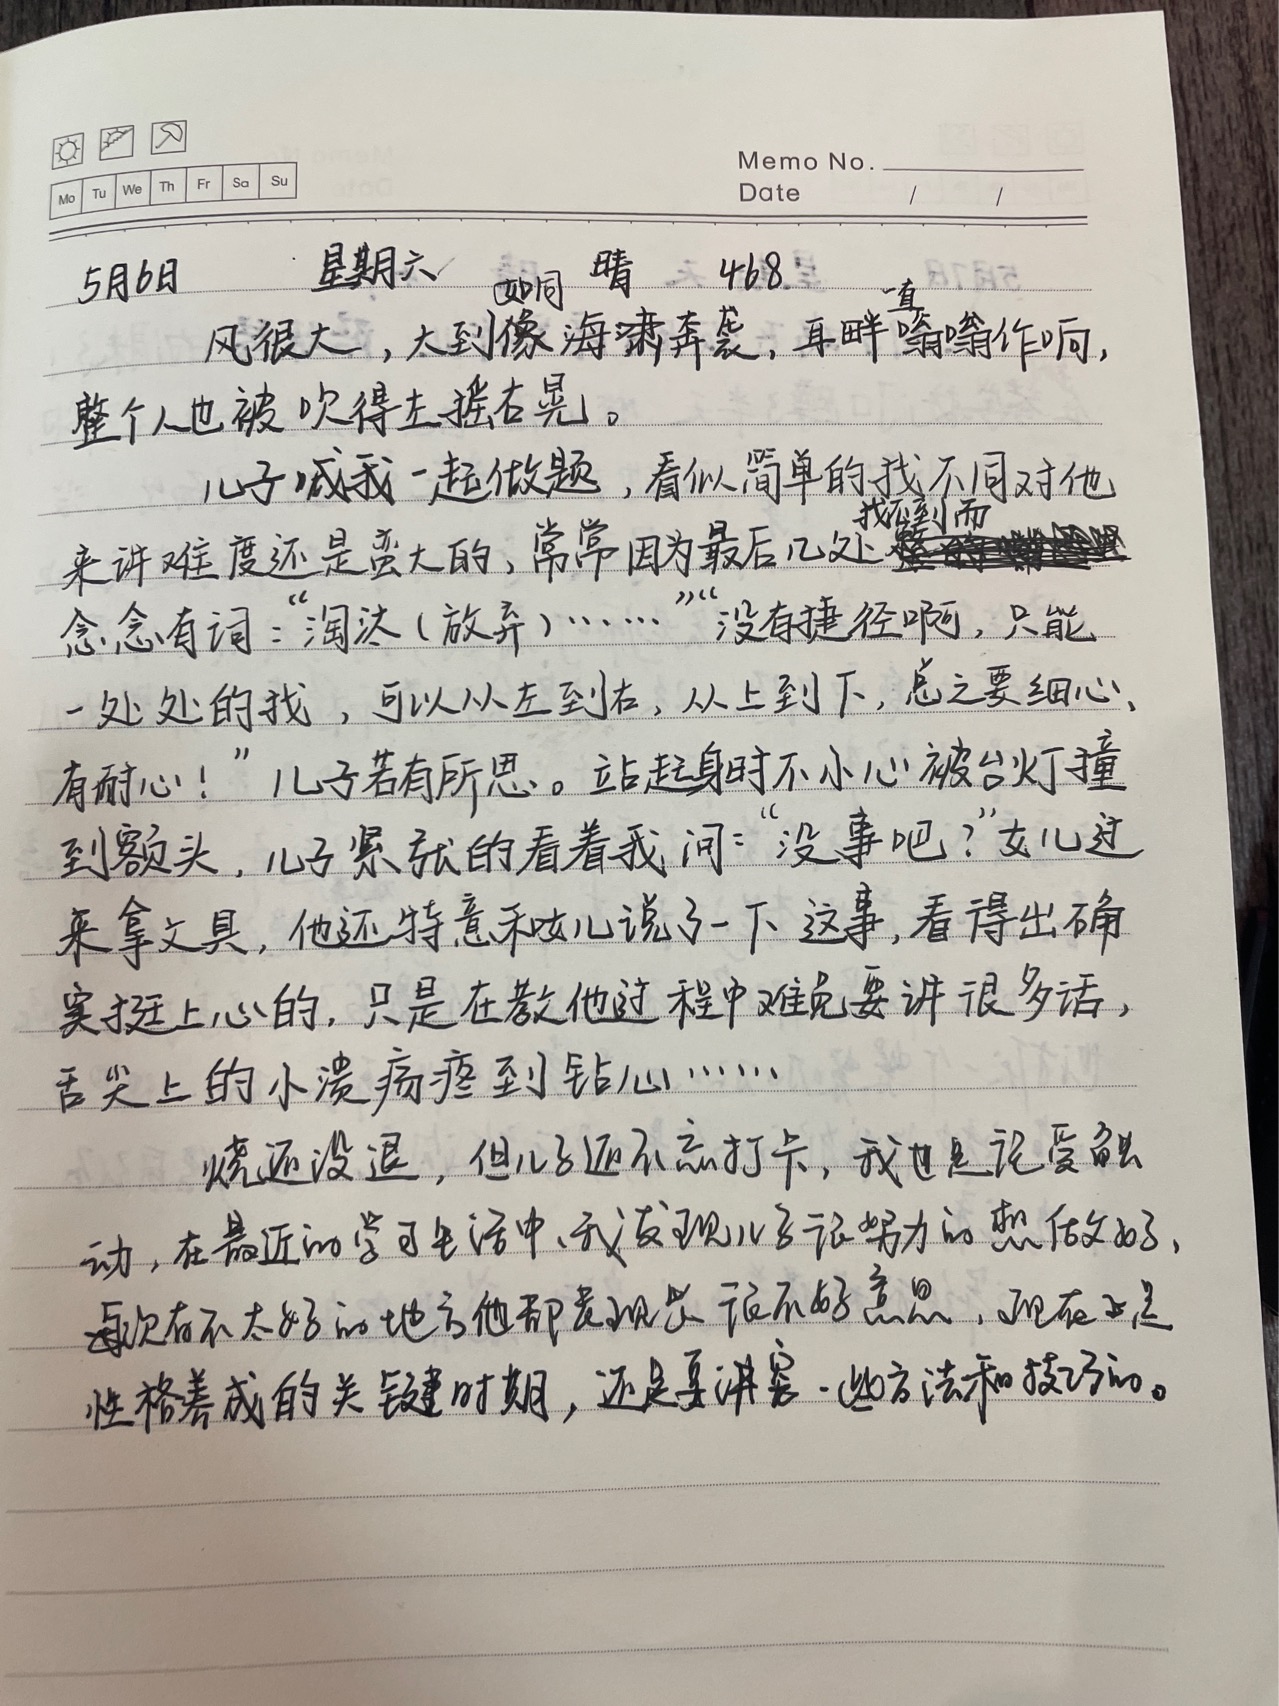 Mo Tu We Th Fr Sa Su
Memo No.
Date / /
5月6日 星期六 晴 468
如同 一直
风很大，大到像海啸奔袭，耳畔嗡嗡作响，
整个人也被吹得左摇右晃。
儿子喊我一起做题，看似简单的找不同对他
找不到而
来讲难度还是蛮大的，常常因为最后几处
念念有词：“淘汰（放弃）……”“没有捷径啊，只能
一处处的找，可以从左到右，从上到下，总之要细心、
有耐心！”儿子若有所思。站起身时不小心被台灯撞
到额头，儿子紧张的看着我问：“没事吧？”女儿过
来拿文具，他还特意和女儿说了一下这事，看得出确
实挺上心的，只是在教他过程中难免要讲很多话，
舌尖上的小溃疡疼到钻心……
烧还没退，但儿子还不忘打卡，我也是深受触
动，在最近的学习生活中、我发现儿子很努力的想做好，
每次有不太好的地方他都表现出很不好意思，现在正是
性格养成的关键时期，还是要讲究一些方法和技巧的。